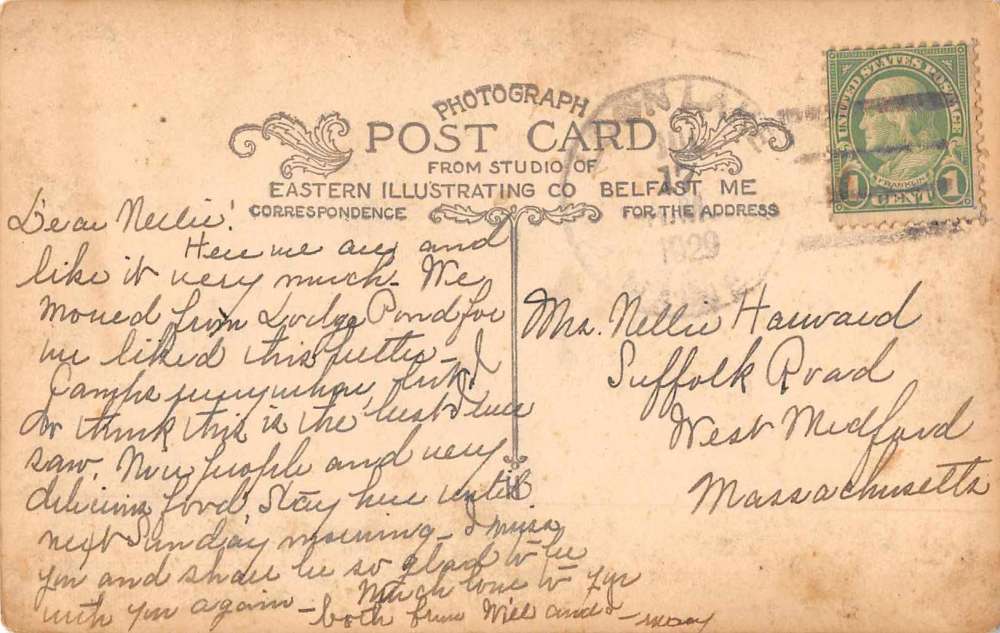 PHOTOGRAPH
POST CARD
FROM STUDIO OF
EASTERN ILLUSTRATING CO BELFAST ME
CORRESPONDENCE
FOR THE ADDRESS
UNITED STATES POSTAGE
FRANKLIN
1 CENT 1
17
1929
Dear Nellie!
Here we are and
like it very much. We
moved from Lodge Pond for
we liked this better - 
Camps everywhere, but I
do think this is the best I ever
saw. Nice people and very
delicious food. Stay here until
next Sunday morning - I miss
you and shall be so glad to be
with you again - Much love to you
both from Will and - 
Mrs. Nellie Harward
Suffolk Road
West Medford
Massachusetts